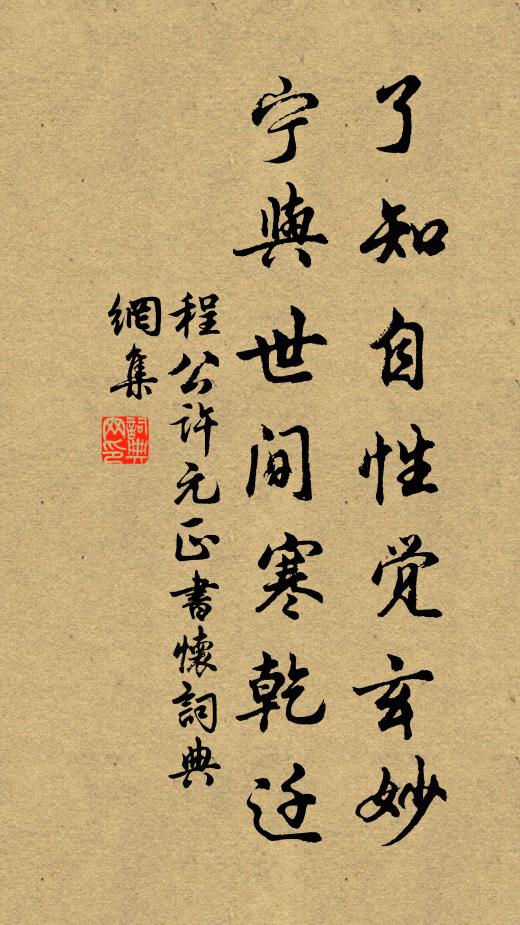 了知自性觉玄妙
宁与世间寒乾迁
程公许元正书怀词典
網集
詞典网印